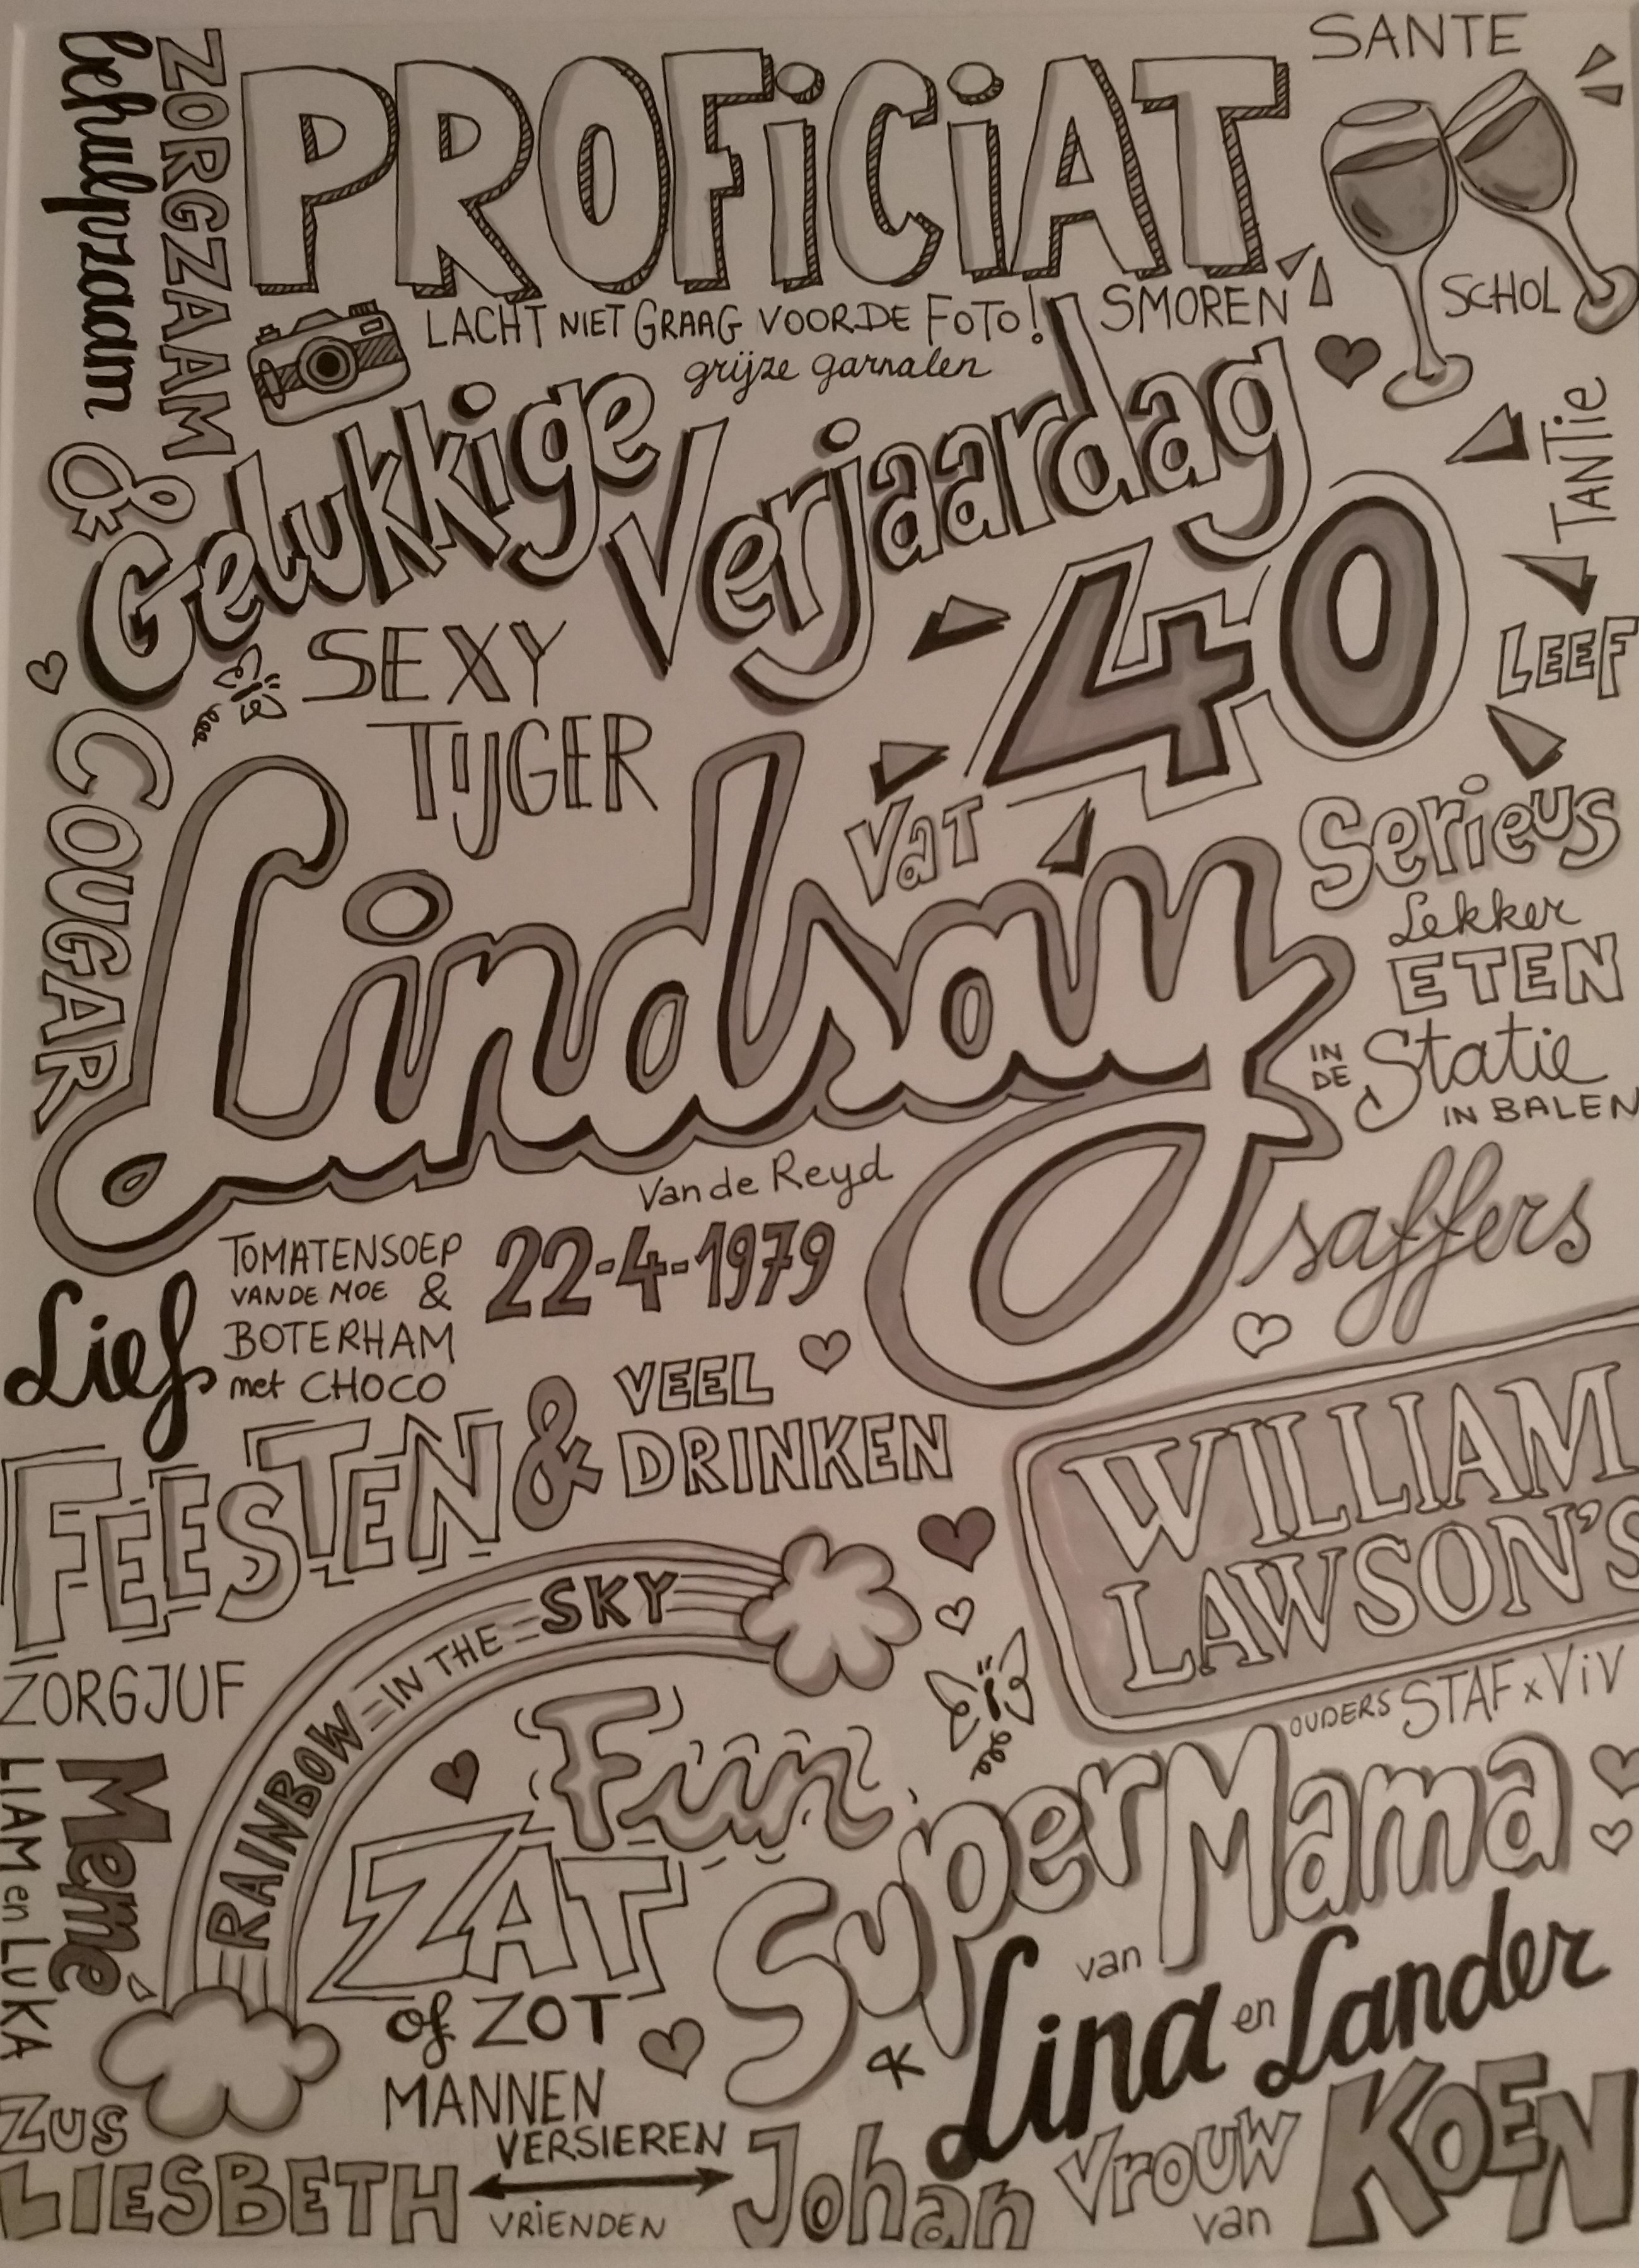 behulpzaam
ZORGZAAM
PROFiCiAT
SANTE
SCHOL
LACHT NIET GRAAG VOOR DE FOTO!
SMOREN
grijze garnalen
Gelukkige
Verjaardag
40
TANTie
LEEF
SEXY
TIJGER
COUGAR
Lindsay
VaT
Serieus
Lekker
ETEN
IN DE Statie
IN BALEN
Van de Reyd
saffers
TOMATENSOEP
VAN DE MOE &
BOTERHAM
met CHOCO
22-4-1979
Lief
FEESTEN &
VEEL
DRINKEN
WILLIAM
LAWSON'S
RAINBOW IN THE SKY
ZORGJUF
OUDERS STAF x ViV
Fun
ZAT
of ZOT
Memé
LIAM en LUKA
SuperMama
van
Lina en Lander
MANNEN
VERSIEREN
ZUS
LIESBETH
VRIENDEN
Johan
Vrouw
van
KOEN